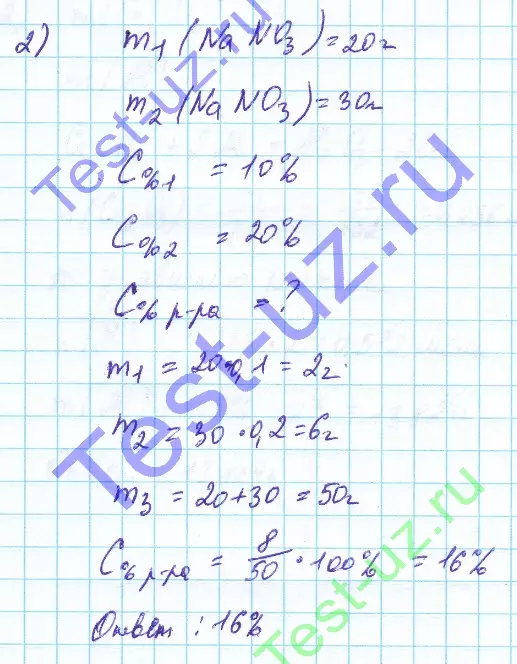 2) m₁ (NaNO₃) = 20г
m₂ (NaNO₃) = 30г
C%₁ = 10%
C%₂ = 20%
C% р-ра = ?
m₁ = 20·0,1 = 2г
m₂ = 30·0,2 = 6г
m₃ = 20+30 = 50г
C% р-ра = 8/50 · 100% = 16%
Ответ: 16%
Test-uz.ru
Test-uz.ru
Test-uz.ru